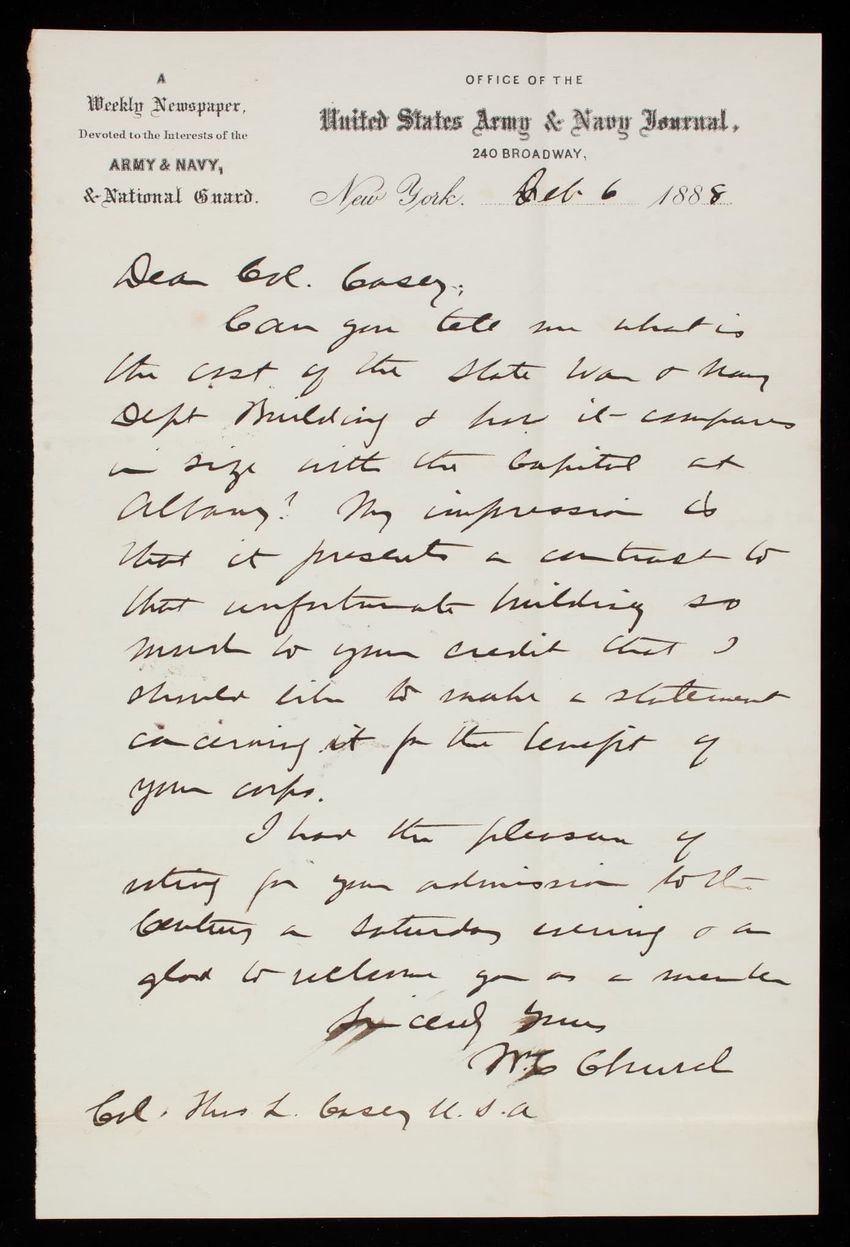 A
Weekly Newspaper,
Devoted to the Interests of the
ARMY & NAVY,
& National Guard.
OFFICE OF THE
United States Army & Navy Journal,
240 BROADWAY,
New York. Feb 6 1888
Dear Col. Casey;
Can you tell me what is
the cost of the State War & Navy
Dept Building & how it compares
in size with the Capitol at
Albany? My impression is
that it presents a contrast to
that unfortunate building so
much to your credit that I
should like to make a statement
concerning it for the benefit of
your corps.
I had the pleasure of
voting for your admission to the
Century on Saturday evening & am
glad to welcome you as a member
Sincerely Yours
W. C. Church
Col. Thos L. Casey U. S. A